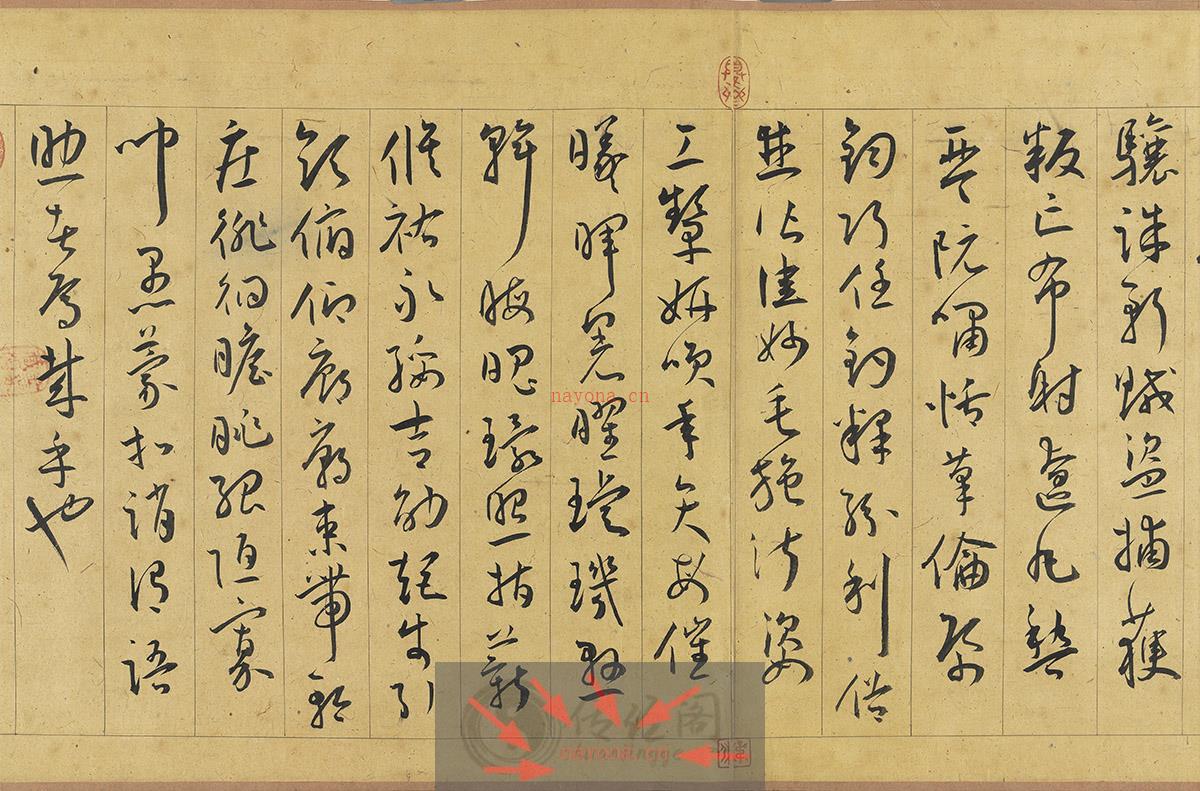 驤誅斬賊盜捕獲
叛亡布射遼丸嵇
琴阮嘯恬筆倫紙
鈞巧任釣釋紛利俗
並皆佳妙毛施淑姿
工顰妍笑年矢每催
曦暉晃曜璇璣懸
斡晦魄環照指薪
修祜永綏吉劭矩步引
領俯仰廊廟束帶矜
莊徘徊瞻眺孤陋寡
聞愚蒙等誚謂語
助者焉哉乎也
nayona.cn
传绘阁